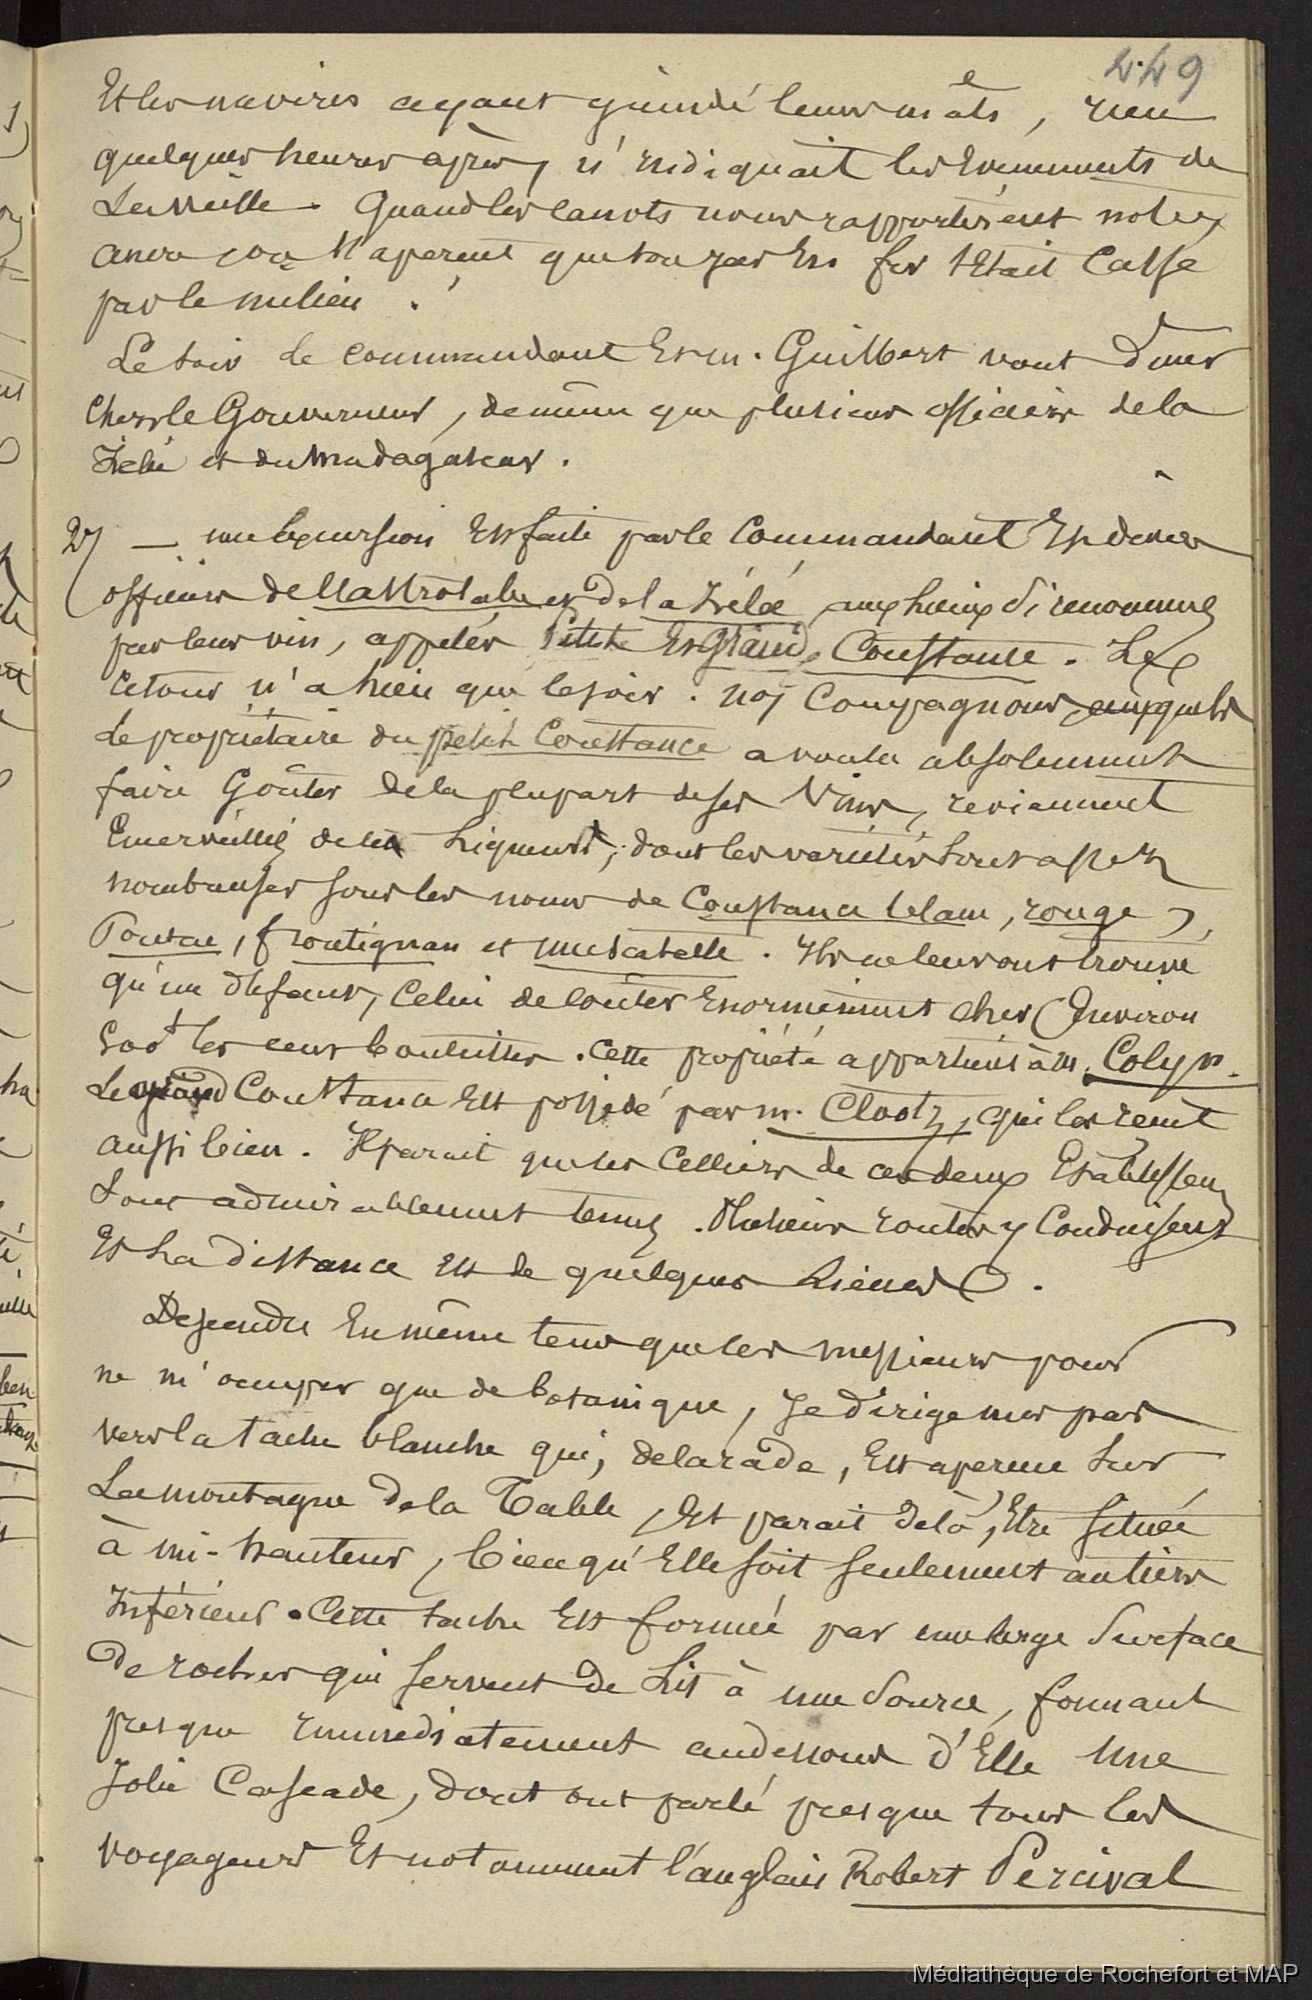 449
Et les navires ayant guindé leurs mâts, rien
quelques heures après, n'indiquait les Evenements de
La veille. Quand les canots nous rapportèrent notre
ancre, on s'aperçut que son jas En fer s'Etait Cassé
par le milieu.
Le soir le commandant Et m. Guilbert vont Diner
Chez le Gouverneur, de même que plusieurs officiers de la
Zélée et du Madagascar.
27 — une Excursion Est faite par le Commandant Et divers
officiers de l'Astrolabe et De la Zélée, aux lieux Si renommés
par leur vin, appelés Petit Et Grand Constance. Le
retour n'a lieu que le soir. Nos Compagnons, auxquels
le propriétaire du petit Constance a voulu absolument
faire Goûter de la plupart de ses Vins, reviennent
Emerveillés de ces Liqueurs, dont les variétés sont assez
nombreuses sous les noms de Constance blanc, rouge,
Pontac, frontignan et muscatelle. Ils ne leur ont trouvé
qu'un défaut, Celui de coûter Enormément cher (Environ
les cent bouteilles. Cette propriété appartient à m. Colyn.
Le grand Constance Est possédé par m. Clootz, qui les reçut
aussi bien. Il parait que les Celliers de ces deux Etablissem
Sont admirablement tenus. Plusieurs routes y Conduisent
Et La distance Est de quelques Lieues.
Descendu En même tems que ces messieurs pour
ne m'occuper que de botanique, Je dirige mes pas
vers la tache blanche qui, de la rade, Est aperçue Sur
La montagne de la Table, Et parait de là, Etre Située
à mi-hauteur, bien qu'Elle soit seulement au tiers
Inférieur. Cette tache Est formée par une large Surface
De roches qui servent de Lit à une Source, formant
presque Immédiatement au dessous d'Elle Une
Jolie Cascade, dont ont parlé presque tous les
voyageurs Et notamment l'anglais Robert Percival
Médiathèque de Rochefort et MAP